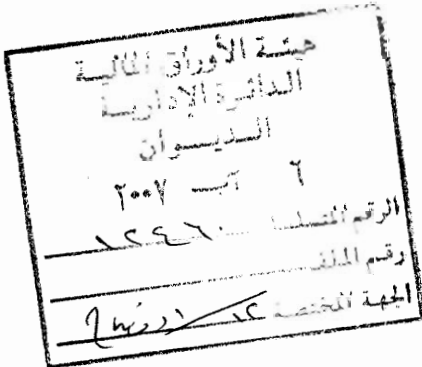 هيئة الأوراق المالية
الدائرة الإدارية
الديوان
٦ آب ٢٠٠٧
الرقم المتسلسل ١٢٤٦٠
رقم الملف
الجهة المختصة